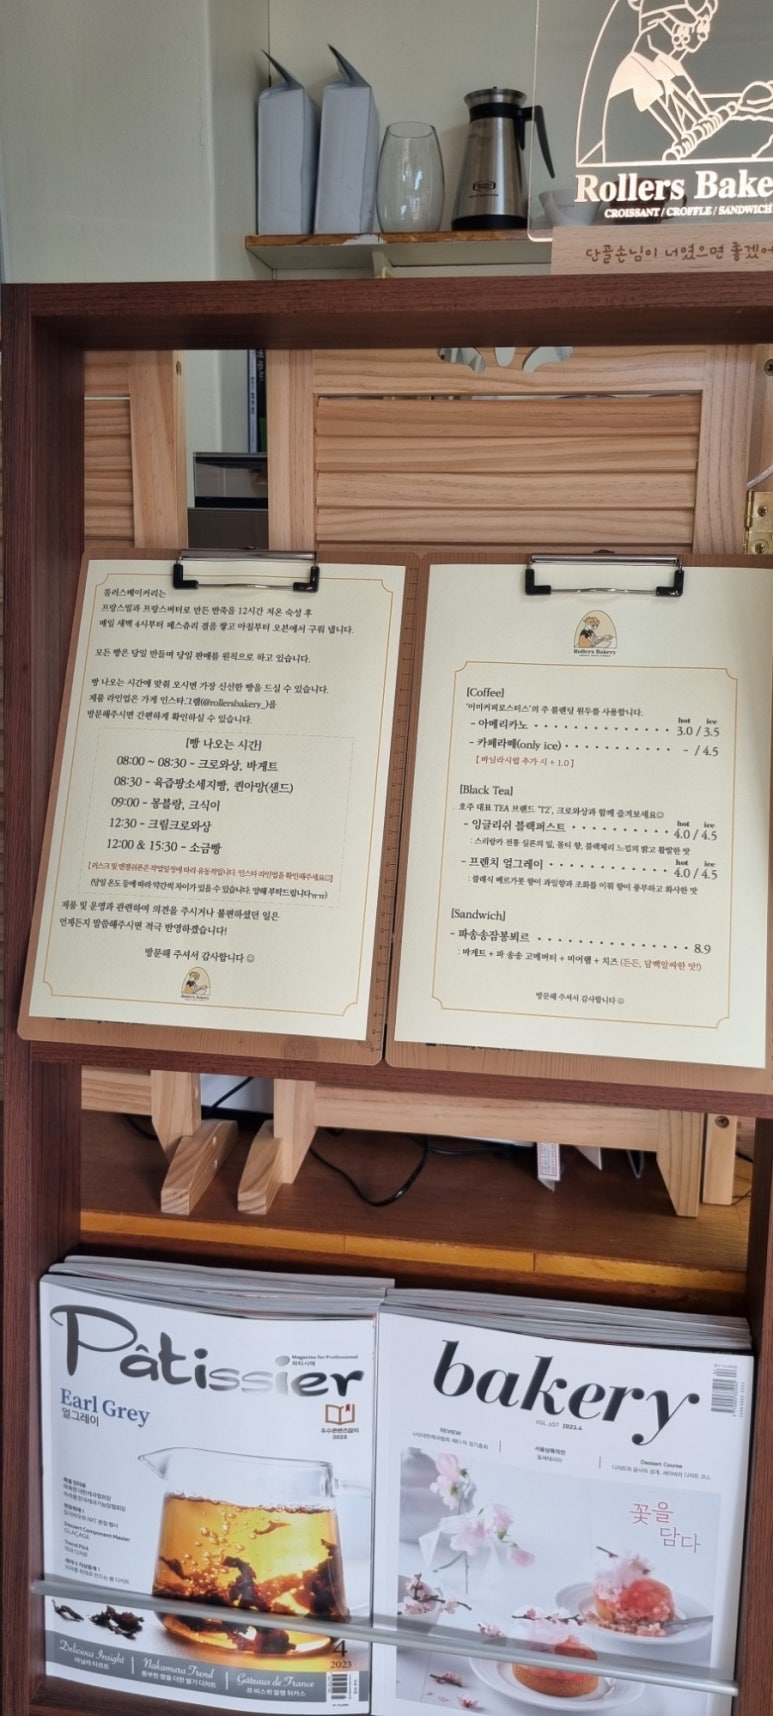 Rollers Bake
CROISSANT / CROFFLE / SANDWICH
단골손님이 너였으면 좋겠어
롤러스베이커리는
프랑스밀과 프랑스버터로 만든 반죽을 12시간 저온 숙성 후
매일 새벽 4시부터 페스츄리 결을 쌓고 아침부터 오븐에서 구워 냅니다.
모든 빵은 당일 만들며 당일 판매를 원칙으로 하고 있습니다.
빵 나오는 시간에 맞춰 오시면 가장 신선한 빵을 드실 수 있습니다.
제품 라인업은 가게 인스타그램(@rollersbakery_)을
방문해주시면 간편하게 확인하실 수 있습니다.
[빵 나오는 시간]
08:00 ~ 08:30 - 크로와상, 바게트
08:30 - 육즙팡소세지빵, 퀸아망(샌드)
09:00 - 몽블랑, 크식이
12:30 - 크림크로와상
12:00 & 15:30 - 소금빵
인스타 라인업을 확인해주세요
(당일 온도 등에 따라 약간씩 차이가 있을 수 있습니다. 양해 부탁드립니다ㅠㅠ)
제품 및 운영과 관련하여 의견을 주시거나 불편하셨던 일은
언제든지 말씀해주시면 적극 반영하겠습니다!
방문해 주셔서 감사합니다 ☺
Rollers Bakery
Rollers Bakery
[Coffee]
'이미커피로스터스'의 주 블렌딩 원두를 사용합니다.
hot ice
- 아메리카노 3.0 / 3.5
- 카페라떼(only ice) - / 4.5
[ 바닐라시럽 추가 시 + 1.0 ]
[Black Tea]
호주 대표 TEA 브랜드 'T2', 크로와상과 함께 즐겨보세요☺
hot ice
- 잉글리쉬 블랙퍼스트 4.0 / 4.5
: 스리랑카 전통 실론의 잎, 몰티 향, 블랙체리 느낌의 밝고 활발한 맛
hot ice
- 프렌치 얼그레이 4.0 / 4.5
: 클래식 베르가못 향이 과일향과 조화를 이뤄 향이 풍부하고 화사한 맛
[Sandwich]
- 파송송잠봉뵈르 8.9
: 바게트 + 파 송송 고메버터 + 비어햄 + 치즈 (든든, 담백알싸한 맛!)
방문해 주셔서 감사합니다 ☺
Pâtissier
Magazine for Professional
파티시에
Earl Grey
얼그레이
우수콘텐츠잡지
2023
Dessert Component Master
GLAÇAGE
Trend Pick
Delicious Insight
바닐라 타르트
Nakamura Trend
풍부한 향을 더한 딸기 디저트
Gâteaux de France
4
2023
bakery
VOL.657 2023.4
REVIEW
Dessert Course
꽃을
담다